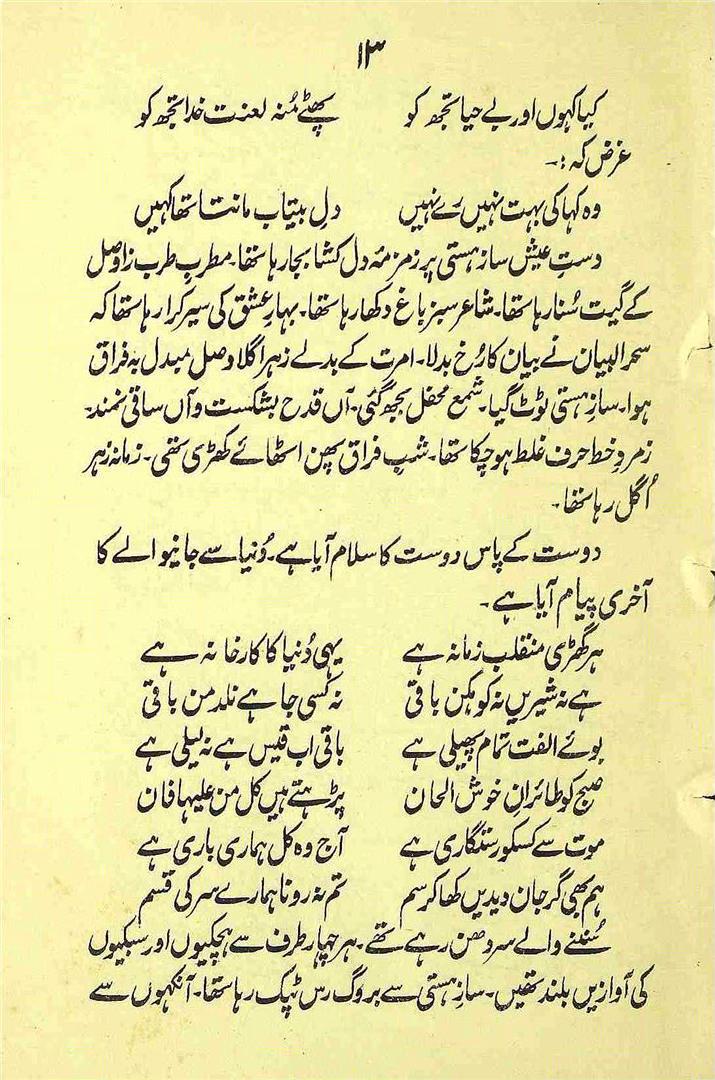 ۱۳
کیا کہوں اور بے حیا تجھ کو پھٹے مُنہ لعنت خدا تجھ کو
غرض کہ :۔
وہ کہا کی بہت نہیں رے نہیں دلِ بیتاب مانتا تھا کہیں
دستِ عیش سازِ ہستی پر زمزمہ دل کشا بجا رہا تھا۔ مطربِ طرب زا وصل
کے گیت سُنا رہا تھا۔ شاعر سبز باغ دکھا رہا تھا۔ بہارِ عشق کی سیر کرا رہا تھا کہ
سحر البیان نے بیان کا رُخ بدلا۔ امرت کے بدلے زہر اگلا وصل مبدل بہ فراق
ہوا۔ سازِ ہستی ٹوٹ گیا۔ شمع محفل بجھ گئی۔ آں قدح بشکست و آں ساقی نمند۔
زمرد خط حرف غلط ہو چکا تھا۔ شبِ فراق پھن اٹھائے کھڑی تھی۔ زمانہ زہر
اُگل رہا تھا۔
دوست کے پاس دوست کا سلام آیا ہے۔ دُنیا سے جانیوالے کا
آخری پیام آیا ہے۔
ہر گھڑی منقلب زمانہ ہے یہی دُنیا کا کارخانہ ہے
ہے نہ شیریں نہ کوہکن باقی نہ کسی جا ہے نلدمن باقی
بوئے الفت تمام پھیلی ہے باقی اب قیس ہے نہ لیلی ہے
صبح کو طائرانِ خوش الحان پڑھتے ہیں کل من علیہا فان
موت سے کسکو رستگاری ہے آج وہ کل ہماری باری ہے
ہم بھی گر جان دیدیں کھا کر سم تم نہ رونا ہمارے سر کی قسم
سُننے والے سر دھن رہے تھے۔ ہر چہار طرف سے ہچکیوں اور سبکیوں
کی آوازیں بلند تھیں۔ سازِ ہستی سے بروگ رس ٹپک رہا تھا۔ آنکھوں سے